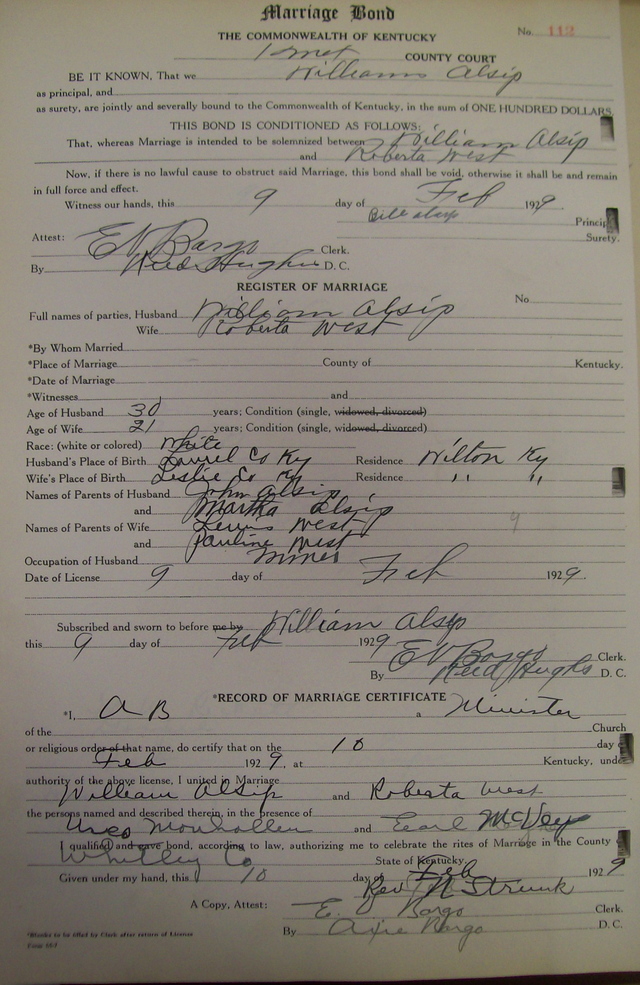 Marriage Bond
THE COMMONWEALTH OF KENTUCKY No. 112
Knox COUNTY COURT
BE IT KNOWN, That we William Alsip
as principal, and
as surety, are jointly and severally bound to the Commonwealth of Kentucky, in the sum of ONE HUNDRED DOLLARS
THIS BOND IS CONDITIONED AS FOLLOWS:
That, whereas Marriage is intended to be solemnized between William Alsip
and Roberta West
Now, if there is no lawful cause to obstruct said Marriage, this bond shall be void, otherwise it shall be and remain
in full force and effect.
Witness our hands, this 9 day of Feb 1929
Bill alsip Princip
Surety.
Attest: EV Bargo Clerk.
By Reed Hughes D. C.
REGISTER OF MARRIAGE
No
Full names of parties, Husband William Alsip
Wife Roberta West
*By Whom Married
*Place of Marriage County of Kentucky.
*Date of Marriage
*Witnesses and
Age of Husband 30 years; Condition (single, widowed, divorced)
Age of Wife 21 years; Condition (single, widowed, divorced)
Race: (white or colored) White
Husband's Place of Birth Laurel Co Ky Residence Wilton Ky
Wife's Place of Birth Leslie Co Ky Residence " "
Names of Parents of Husband John Alsip
and Martha Alsip
Names of Parents of Wife Lewis West
and Pauline West
Occupation of Husband Miner
Date of License 9 day of Feb 1929.
Subscribed and sworn to before me by William Alsip
this 9 day of Feb 1929
EV Bargo Clerk.
By Reed Hughes D. C.
*RECORD OF MARRIAGE CERTIFICATE
*I, A B a Minister
of the Church
or religious order of that name, do certify that on the 10 day o
Feb 1929, at Kentucky, unde
authority of the above license, I united in Marriage
William Alsip and Roberta West
the persons named and described therein, in the presence of
Monhollen and Earl McVey
I qualified and gave bond, according to law, authorizing me to celebrate the rites of Marriage in the County
Whitley Co State of Kentucky.
Given under my hand, this 10 day Feb 1929
Rev N Strunk
A Copy, Attest: E. V Bargo Clerk.
By Bargo D. C.
*Blanks to be filled by Clerk after return of License